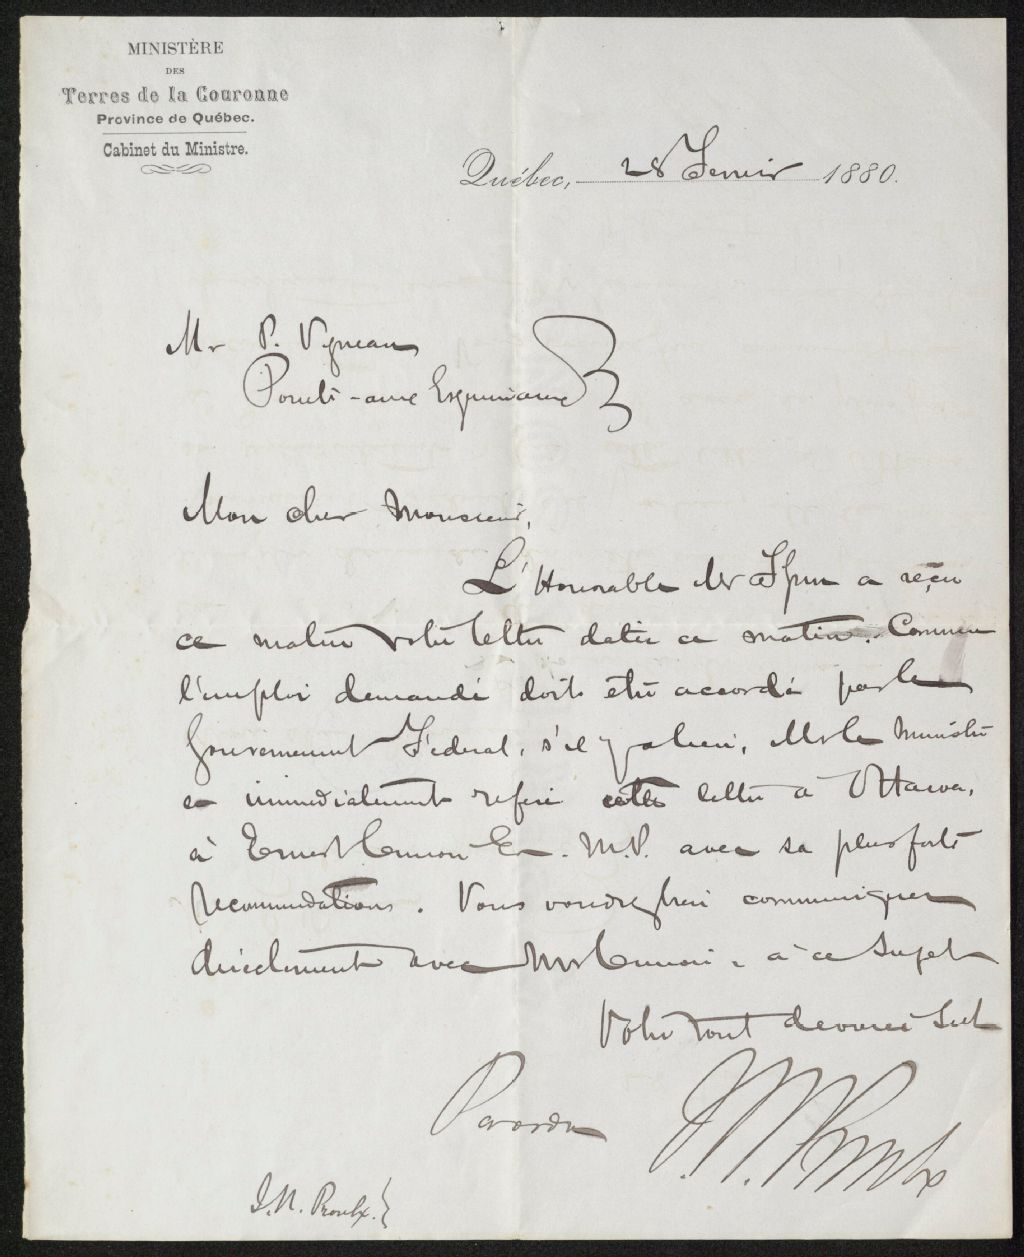 MINISTÈRE
DES
Terres de la Couronne
Province de Québec.
Cabinet du Ministre.
Québec, 28 Fevrier 1880.
Mr P. Vigneau
Pointe-aux Esquimaux
Mon cher Monsieur,
L'Honorable Mr Flynn a reçu
ce matin votre lettre datée ce matin. Comme
l'emploi demandé doit être accordé par le
Gouvernement Féderal, s'il y a lieu, Mr le Ministre
a immédiatement referé cette lettre à Ottawa,
à Ernest Cimon Er. M.P. avec sa plus forte
recommendations. Vous voudrez bien communiquer
directement avec Mr Cimon - à ce sujet
Votre tout devoué Sert
Par ordre
J. N. Proulx
J. N. Proulx.